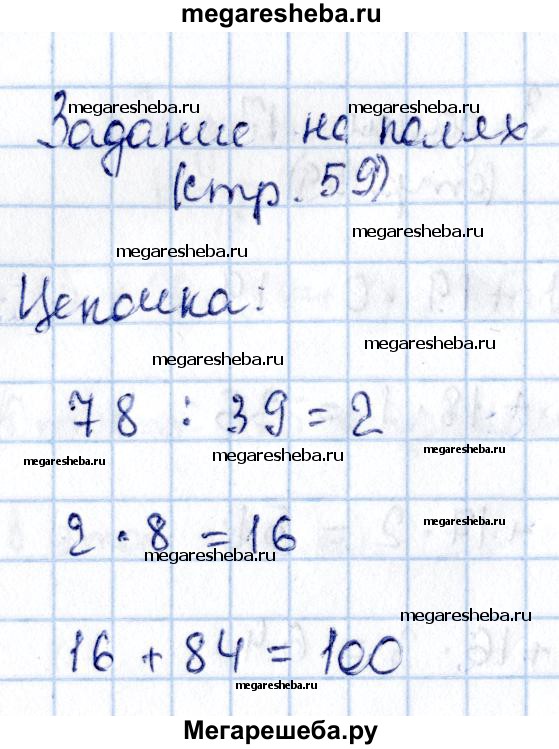 megaresheba.ru
megaresheba.ru megaresheba.ru
Задание на полях
(стр. 59)
megaresheba.ru megaresheba.ru
Цепочка:
megaresheba.ru megaresheba.ru
78 : 39 = 2
megaresheba.ru megaresheba.ru megaresheba.ru
2 · 8 = 16
megaresheba.ru megaresheba.ru
megaresheba.ru
16 + 84 = 100
megaresheba.ru
Мегарешеба.ру